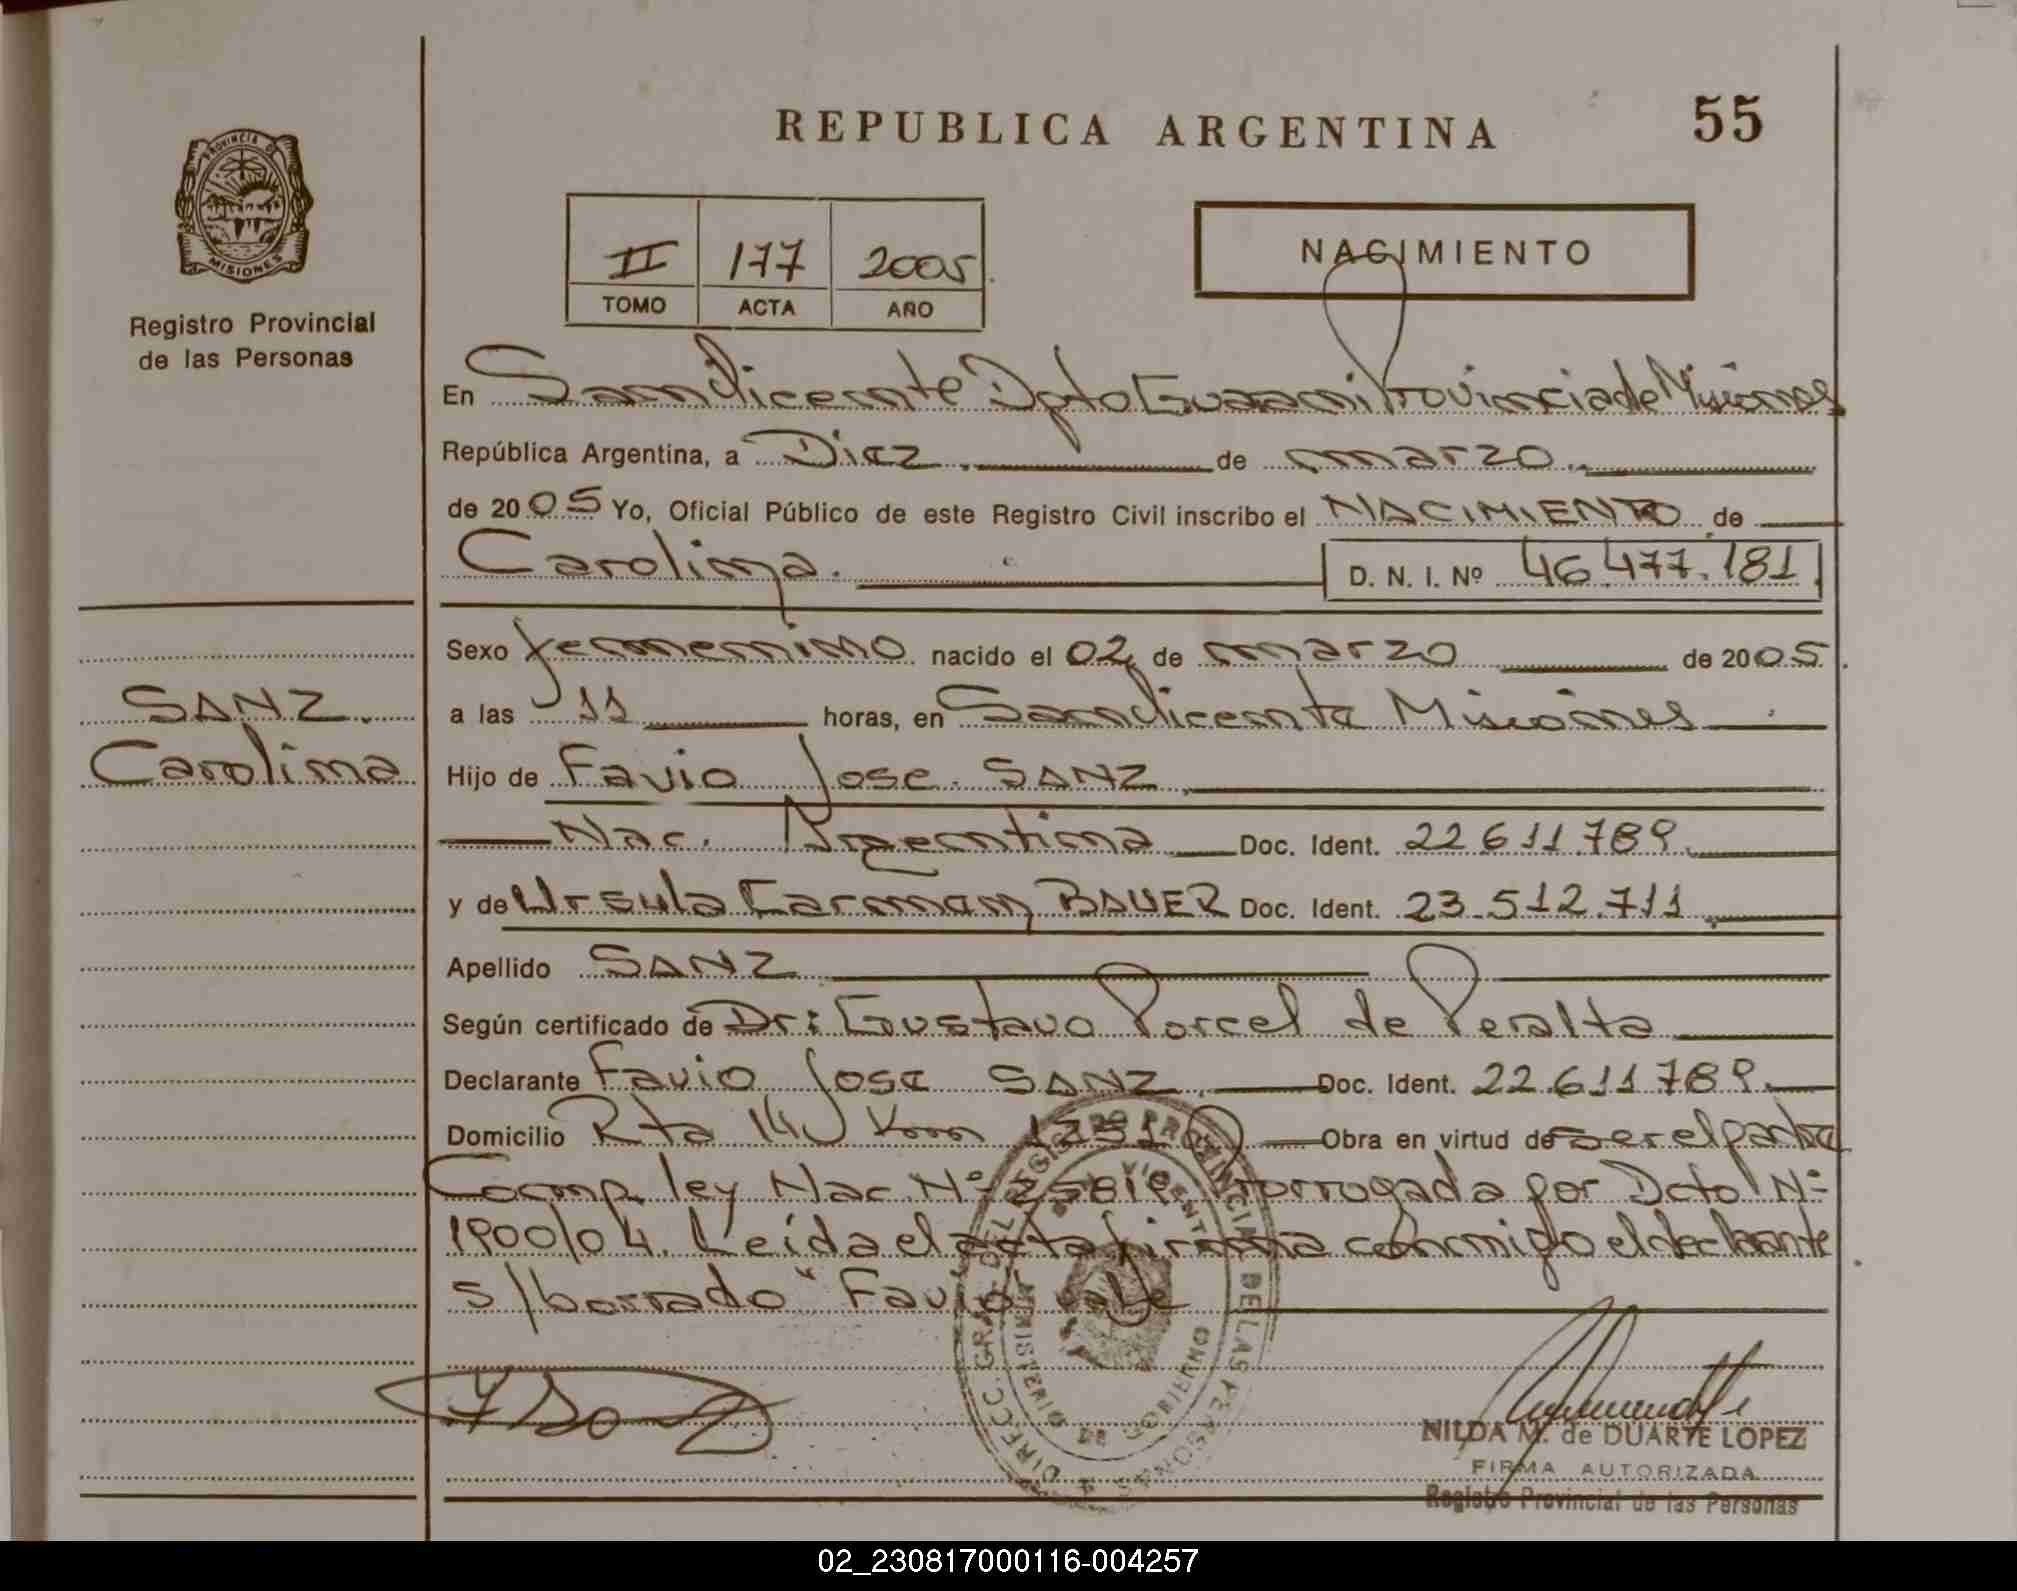 REPUBLICA ARGENTINA
55
PROVINCIA DE
MISIONES
Registro Provincial
de las Personas
II 177 2005.
TOMO ACTA AÑO
NACIMIENTO
En San Vicente Dpto Guaraní Provincia de Misiones
República Argentina, a Diez de marzo
de 2005 Yo, Oficial Público de este Registro Civil inscribo el NACIMIENTO de
Carolina. D. N. I. Nº 46.477.181
Sexo femenino nacido el 02 de marzo de 2005.
SANZ.
Carolina
a las 11 horas, en San Vicente Misiones
Hijo de Favio Jose SANZ
Nac. Argentina Doc. Ident. 22611789.
y de Ursula Carman BAUER Doc. Ident. 23.512.711
Apellido SANZ
Según certificado de Dr: Gustavo Porcel de Peralta
Declarante Favio Jose SANZ Doc. Ident. 22.611789.
Domicilio Rta 14 Km Obra en virtud de ser el padre
Comp. ley Nac. Nº 25819 Prorrogada por Dcto Nº
1900/04. Leída el acta firma conmigo el declarante
s/borrado "Favio" vale
DIRECC. GRAL. DEL REGISTRO PROVINCIAL DE LAS PERSONAS
MINISTERIO DE GOBIERNO
NILDA M. de DUARTE LOPEZ
FIRMA AUTORIZADA
Registro Provincial de las Personas
02_230817000116-004257